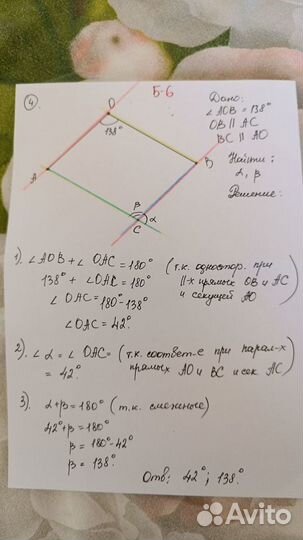 4
Б-6
Дано:
∠AOB = 138°
OB || AC
BC || AO
Найти:
α, β
Решение:
O
138°
A
B
β
α
C
1). ∠AOB + ∠OAC = 180° (т.к. одностор. при
138° + ∠OAC = 180° ||-х прямых OB и AC
∠OAC = 180° - 138° и секущей AO)
∠OAC = 42°.
2). ∠α = ∠OAC = (т.к. соответ-е при парал-х
= 42° прямых AO и BC и сек AC)
3). α + β = 180° (т.к. смежные)
42° + β = 180°
β = 180° - 42°
β = 138°.
Отв: 42°; 138°.
Avito